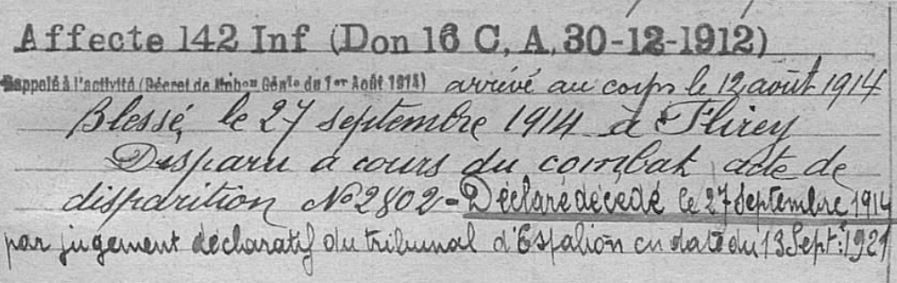 Affecte 142 Inf (Don 16 C, A, 30-12-1912)
Rappelé à l'activité (Décret de Mobon Génle du 1er Août 1914) arrivé au corps le 12 août 1914
Blessé, le 27 septembre 1914 à Flirey
Disparu a cours du combat, acte de
disparition No 2802 - Déclaré décédé le 27 Septembre 1914
par jugement déclaratif du tribunal d'Espalion en date du 13 Sept: 1921